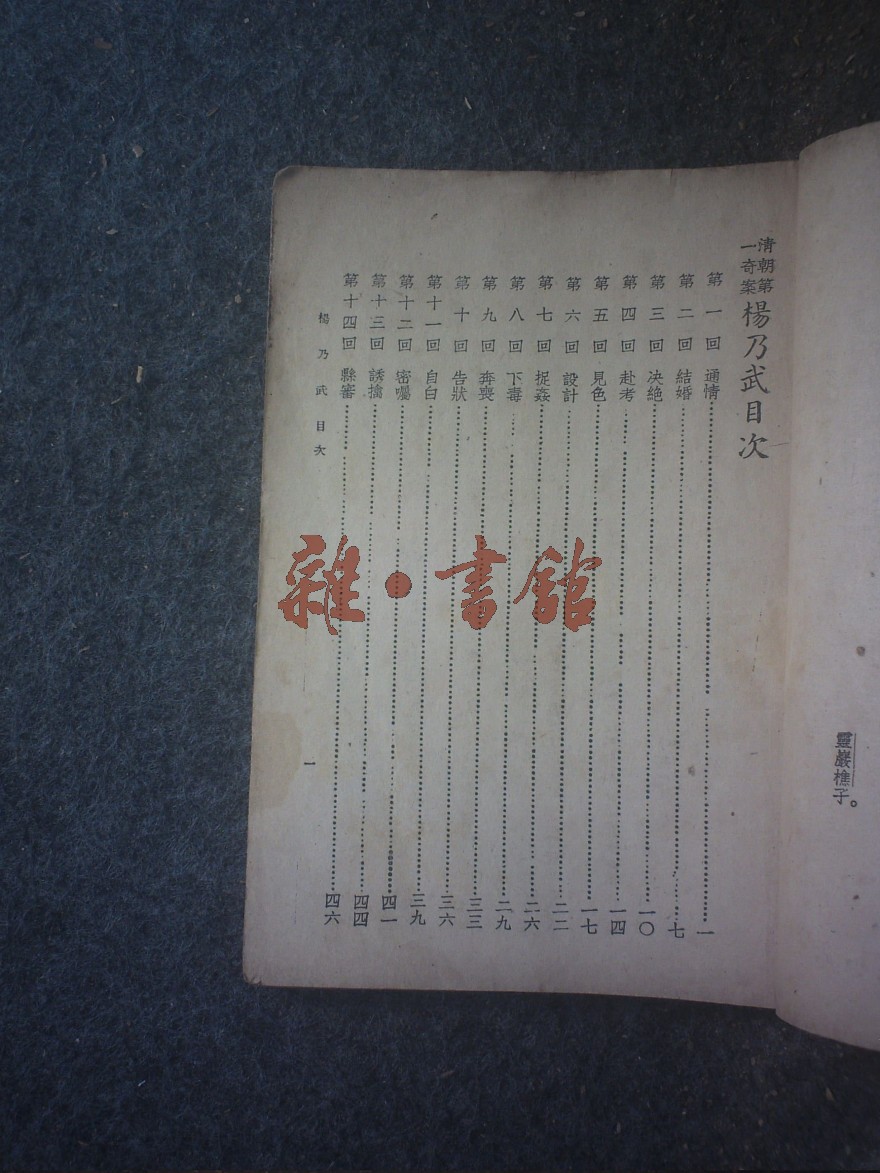 靈巖樵子。
清朝第一奇案 楊乃武目次
第一回 通情 一
第二回 結婚 七
第三回 决絶 一〇
第四回 赴考 一四
第五回 見色 一七
第六回 設計 二二
第七回 捉姦 二六
第八回 下毒 二九
第九回 奔喪 三三
第十回 告狀 三六
第十一回 自白 三九
第十二回 密囑 四一
第十三回 誘擒 四四
第十四回 縣審 四六
楊乃武 目次 一
雜·書館